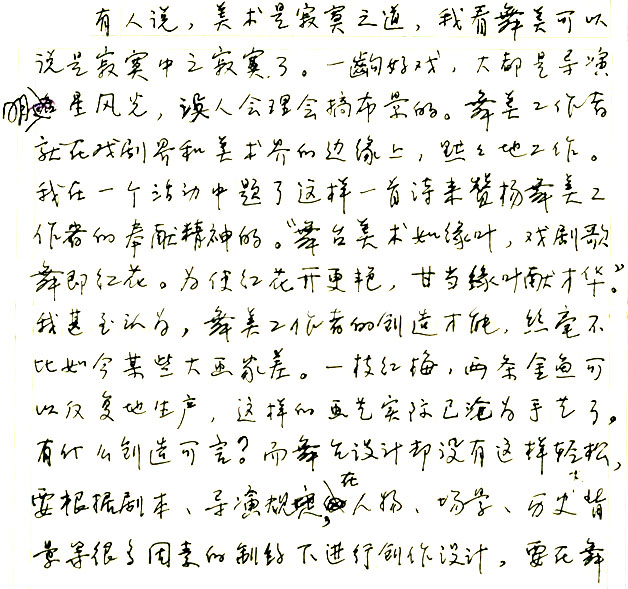 有人说，美术是寂寞之道，我看舞美可以
说是寂寞中之寂寞了。一齣好戏，大都是导演
明星风光，谁人会理会搞布景的。舞美工作者
就在戏剧界和美术界的边缘上，默々地工作。
我在一个活动中题了这样一首诗来赞扬舞美工
作者的奉献精神的。“舞台美术如绿叶，戏剧歌
舞即红花。为使红花开更艳，甘当绿叶献才华。”
我甚至认为，舞美工作者的创造才能，丝毫不
比如今某些大画家差。一枝红梅，两条金鱼可
以反复地生产，这样的画艺实际已沦为手艺了。
有什么创造可言？而舞台设计却没有这样轻松，
要根据剧本、导演规 在人物、场景、历史背
景等很多因素的制约下进行创作设计，要在舞